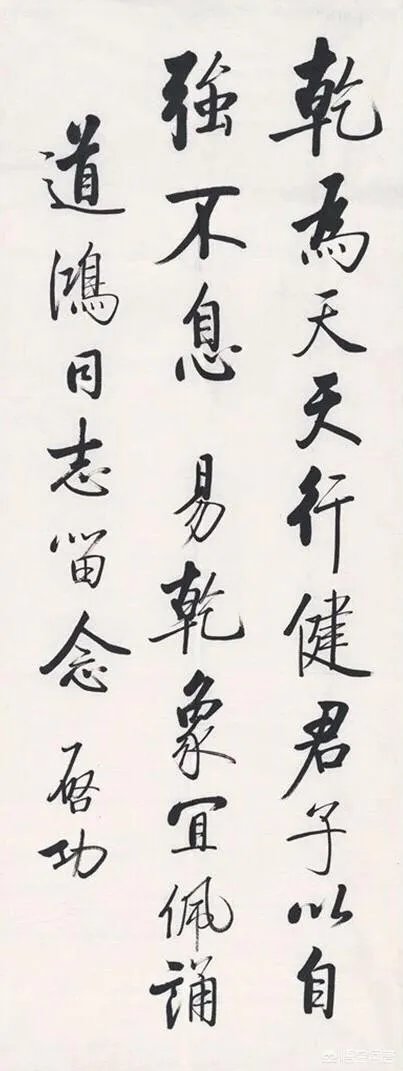 乾為天天行健君子以自
強不息 易乾象宜佩誦
道鴻同志留念 啓功